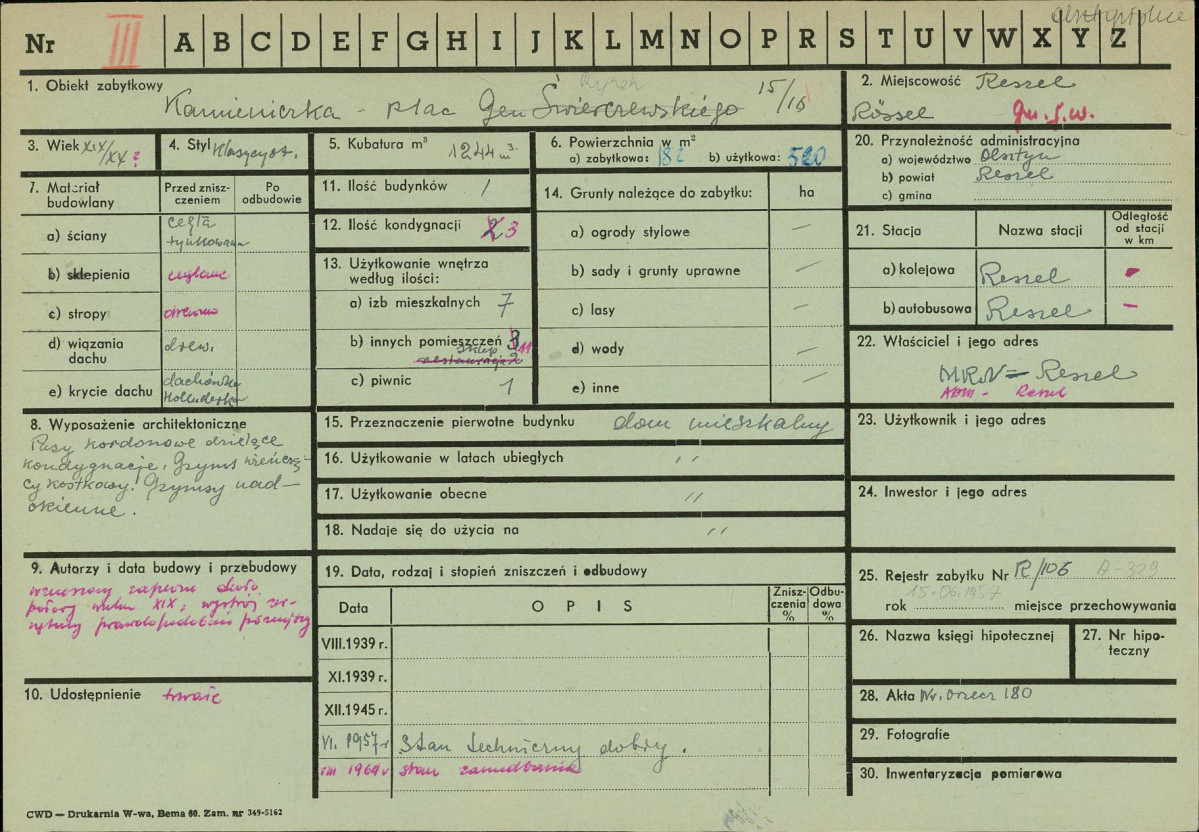 olsztyńskie
Nr III A B C D E F G H I J K L M N O P R S T U V W X Y Z
1. Obiekt zabytkowy
Rynek
Kamieniczka - Plac Gen Świerczewskiego 15/16
2. Miejscowość Reszel
Rössel
3. Wiek XIX/XX?
4. Styl klasycyst.
5. Kubatura m³ 1244 m³
6. Powierzchnia w m²
a) zabytkowa: 182 b) użytkowa: 520
20. Przynależność administracyjna
a) województwo Olsztyn
b) powiat Reszel
c) gmina
7. Materiał budowlany
Przed zniszczeniem
Po odbudowie
a) ściany cegła tynkowana
b) sklepienia ceglane
c) stropy drewno
d) wiązania dachu drew.
e) krycie dachu dachówka Holluderka
11. Ilość budynków 1
12. Ilość kondygnacji 2 3
13. Użytkowanie wnętrza
według ilości:
a) izb mieszkalnych 7
b) innych pomieszczeń 3 11
sklep
restauracja 2
c) piwnic 1
14. Grunty należące do zabytku: ha
a) ogrody stylowe —
b) sady i grunty uprawne —
c) lasy —
d) wody —
e) inne —
21. Stacja
Nazwa stacji
Odległość
od stacji
w km
a) kolejowa Reszel -
b) autobusowa Reszel -
22. Właściciel i jego adres
MRN = Reszel
ADM - Reszel
8. Wyposażenie architektoniczne
Pasy kordonowe dzielące
kondygnacje, Gzyms wieńczą-
cy kostkowy. Gzymsy nad-
okienne.
15. Przeznaczenie pierwotne budynku dom mieszkalny
16. Użytkowanie w latach ubiegłych ,,
17. Użytkowanie obecne ,,
18. Nadaje się do użycia na ,,
23. Użytkownik i jego adres
24. Inwestor i jego adres
9. Autorzy i data budowy i przebudowy
wzniesiony zapewne około
połowy wieku XIX; wystrój ze-
wnętrzny prawdopodobnie późniejszy
10. Udostępnienie trwałe
19. Data, rodzaj i stopień zniszczeń i odbudowy
Data
OPIS
Zniszczenia %
Odbudowa %
VIII.1939 r.
XI.1939 r.
XII.1945 r.
VI. 1957 r Stan techniczny dobry.
VIII 1969 r stan zaniedbania
25. Rejestr zabytku Nr R/106 A-329
15-06.1957
rok miejsce przechowywania
26. Nazwa księgi hipotecznej
27. Nr hipoteczny
28. Akta Nr. orzecz 180
29. Fotografie
30. Inwentaryzacja pomiarowa
CWD — Drukarnia W-wa, Bema 60. Zam. nr 349-5162